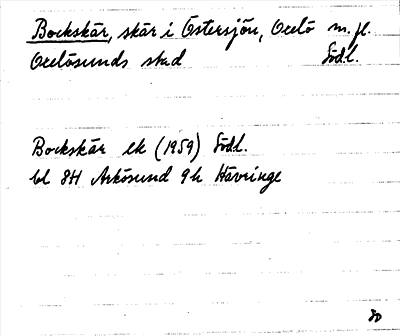 Bockskär, skär i Östersjön, Oxelö m.fl.
Oxelösunds stad Södl.
Bockskär ek (1959) Södl.
bl 8H Arkösund 9h Hävringe